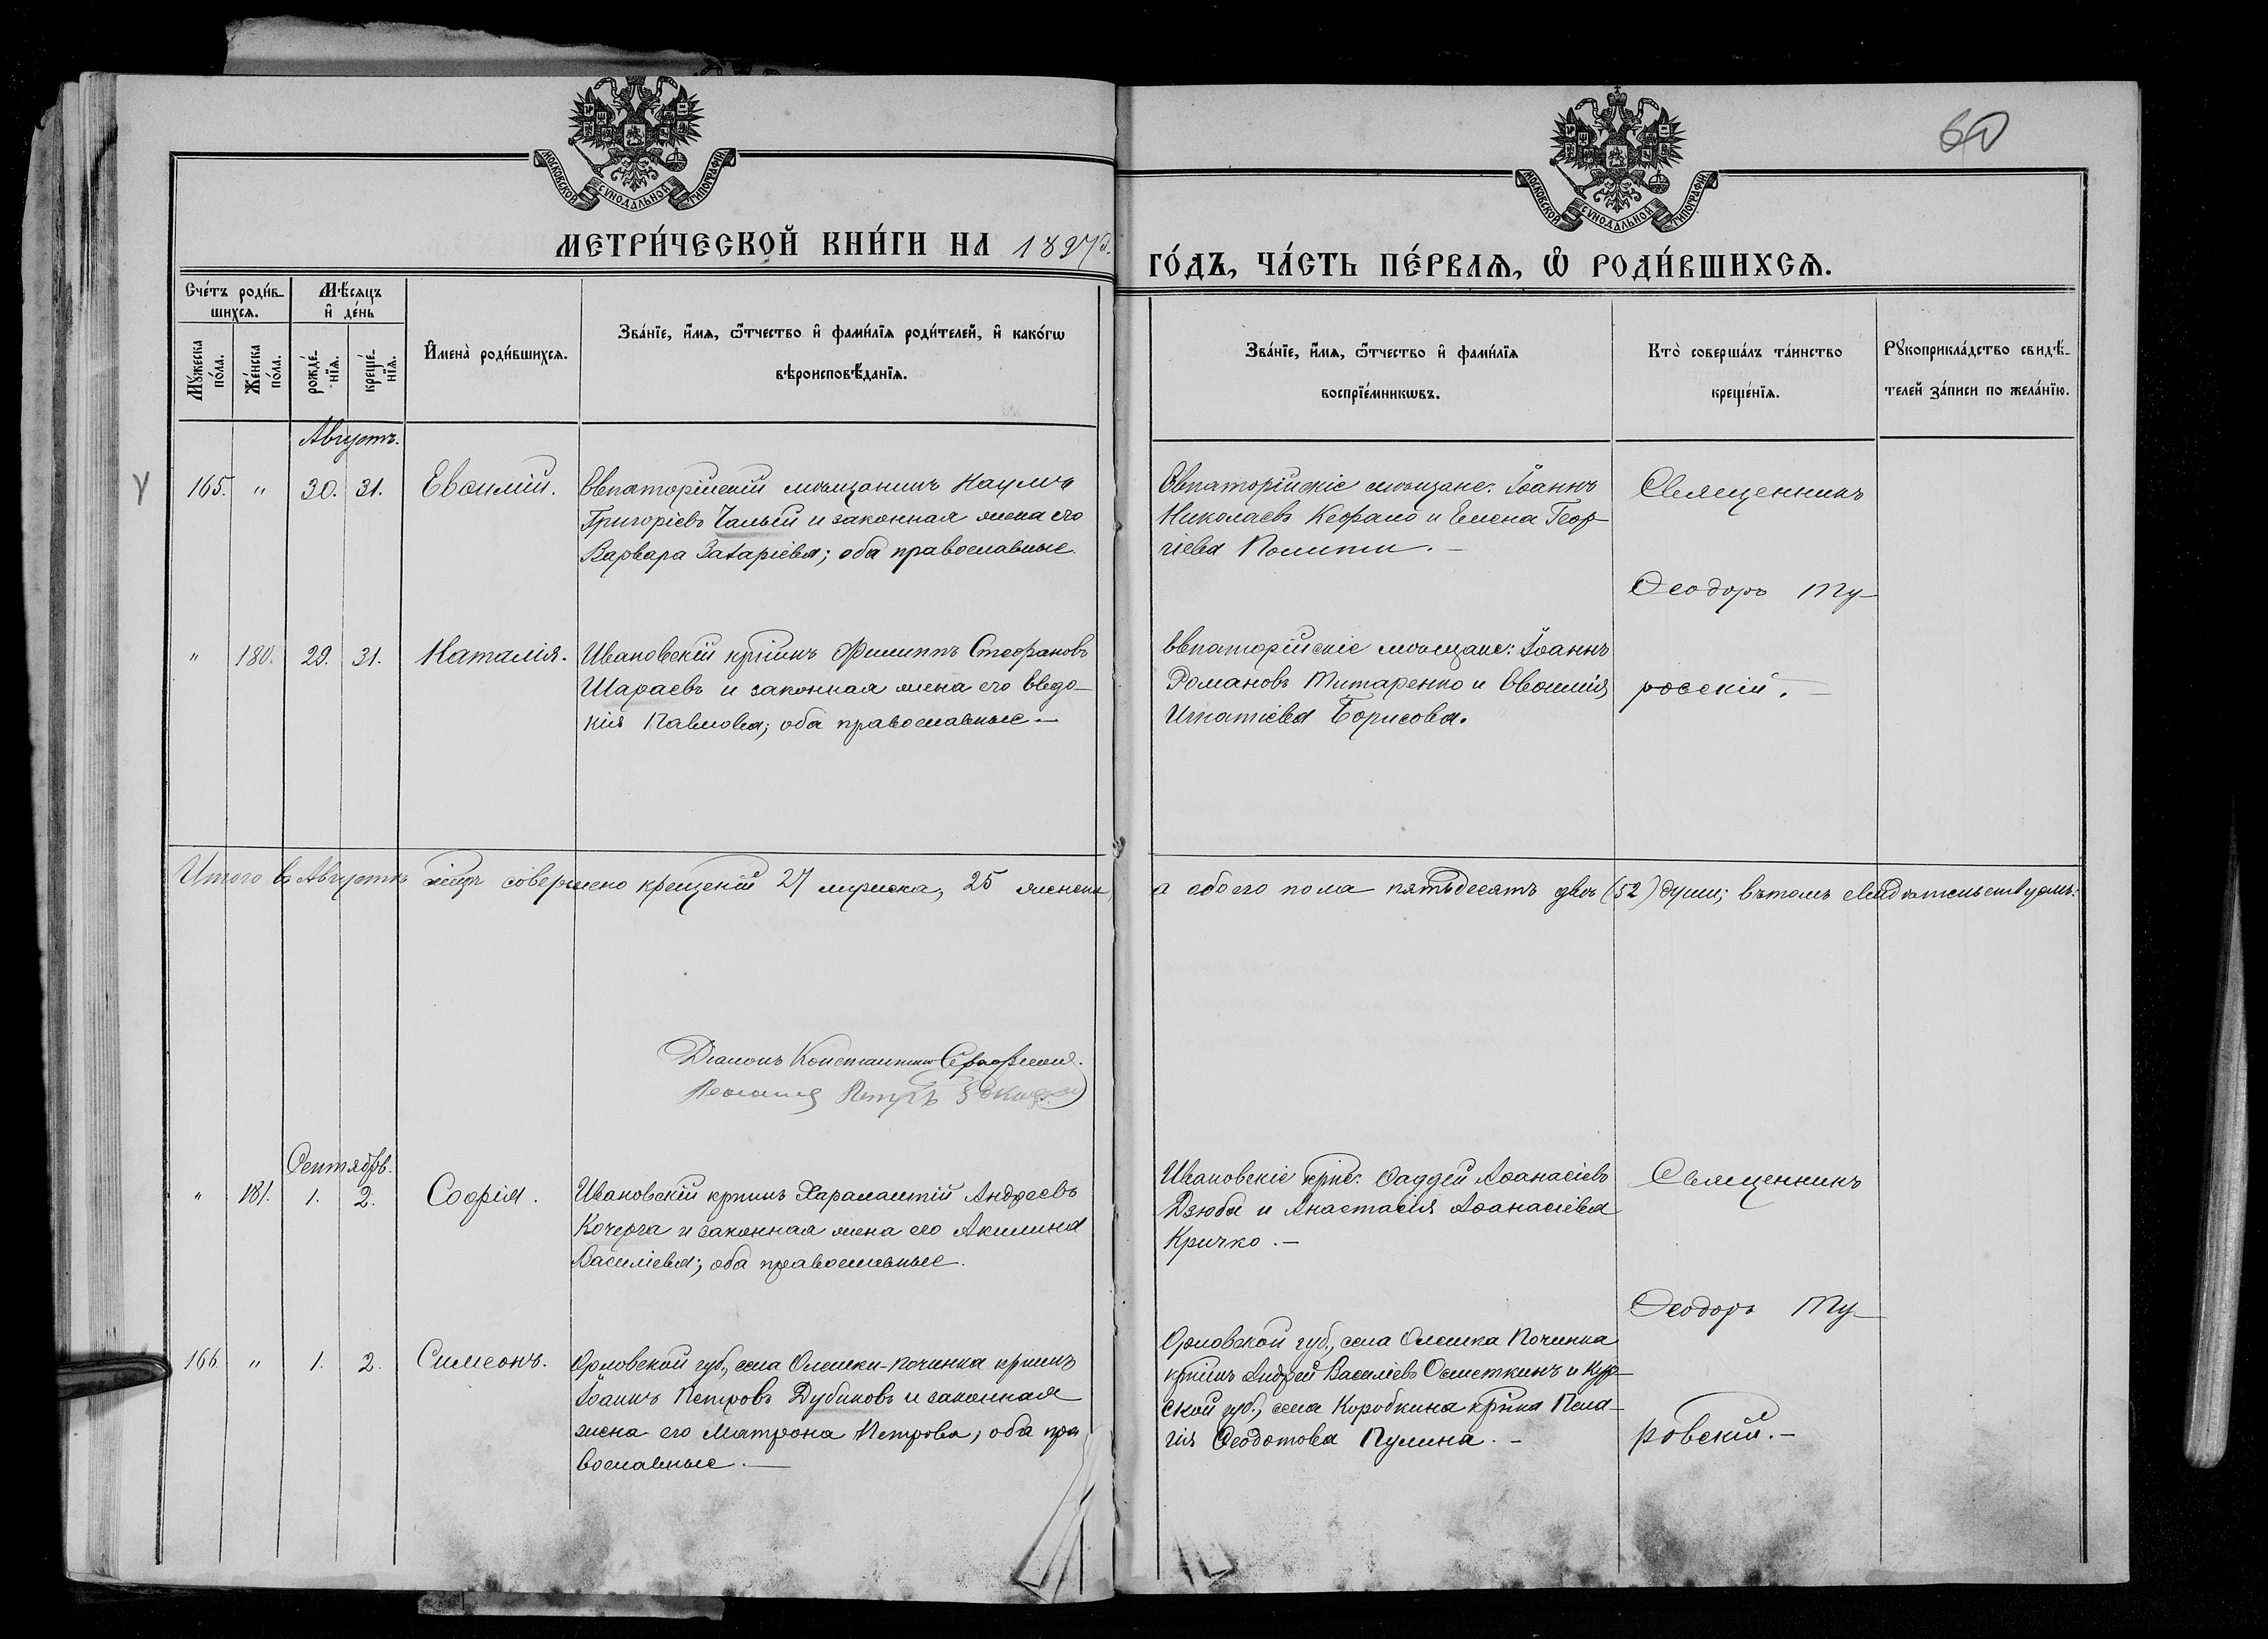 60
МОСКОВСКОЙ СѴНОДАЛЬНОЙ ТИПОГРАФІИ
МОСКОВСКОЙ СѴНОДАЛЬНОЙ ТИПОГРАФІИ
МЕТРИ́ЧЕСКОЙ КНИ́ГИ НА 1897 г.
ГО́ДЪ, ЧА́СТЬ ПЕ́РВАѦ, Ѡ҆ РОДИ́ВШИХСѦ.
Сче́тъ роди́в-
шихсѧ.
Мꙋ́жеска по́ла.
Же́нска по́ла.
Мѣ́сяцъ
и҆ де́нь
рожде́-
нїѧ.
креще́-
нїѧ.
И҆мена̀ роди́вшихсѧ.
Зва́нїе, и҆́мѧ, ѻ҆́тчество и҆ фами́лїѧ роди́телей, и҆ како́гѡ
вѣроисповѣ́данїѧ.
Зва́нїе, и҆́мѧ, ѻ҆́тчество и҆ фами́лїѧ
воспрїе́мникѡвъ.
Кто̀ соверша́лъ та́инство
креще́нїѧ.
Рꙋкоприкла́дство свидѣ́-
телей за́писи по жела́нїю.
Августъ.
165. " 30. 31. Евѳимій.
Евпаторійскій мѣщанинъ Наумъ
Григоріевъ Чалый и законная жена его
Варвара Захаріева; оба православные.
Евпаторійскіе мѣщане: Іоаннъ
Николаевъ Кефало и Елена Геор-
гіева Полити. —
Священникъ
Ѳеодоръ Ту-
ровскій. —
" 180. 29. 31. Наталія.
Ивановскій кр-нинъ Филиппъ Стефановъ
Шараевъ и законная жена его Евдо-
кія Павлова; оба православные. —
Евпаторійскіе мѣщане: Іоаннъ
Романовъ Титаренко и Евѳимія
Игнатіева Борисова.
Итого въ Августѣ м-цѣ совершено крещеній 27 мужеска, 25 женска,
а обоего пола пятьдесятъ двѣ (52) души; въ томъ свидѣтельствуемъ:
Діаконъ Константинъ
Псаломщ Петръ
Сентябрь.
" 181. 1. 2. Софія.
Ивановскій кр-нинъ Харалампій Андреевъ
Кочерга и законная жена его Акилина
Василіева; оба православные.
Ивановскіе кр-не: Ѳаддей Аѳанасіевъ
Дзюба и Анастасія Аѳанасіева
Кричко. —
Священникъ
Ѳеодоръ Ту-
ровскій. —
166 " 1. 2. Симеонъ.
Орловской губ., села Олешки-Починка кр-нинъ
Іоаннъ Петровъ Дубиковъ и законная
жена его Матрона Петрова; оба пра
вославные. —
Орловской губ., села Олешка Починка
кр-нинъ Андрей Василіевъ Осметкинъ и Кур-
ской губ., села Коробкина кр-нка Пела-
гія Ѳеодотова Пулина. —